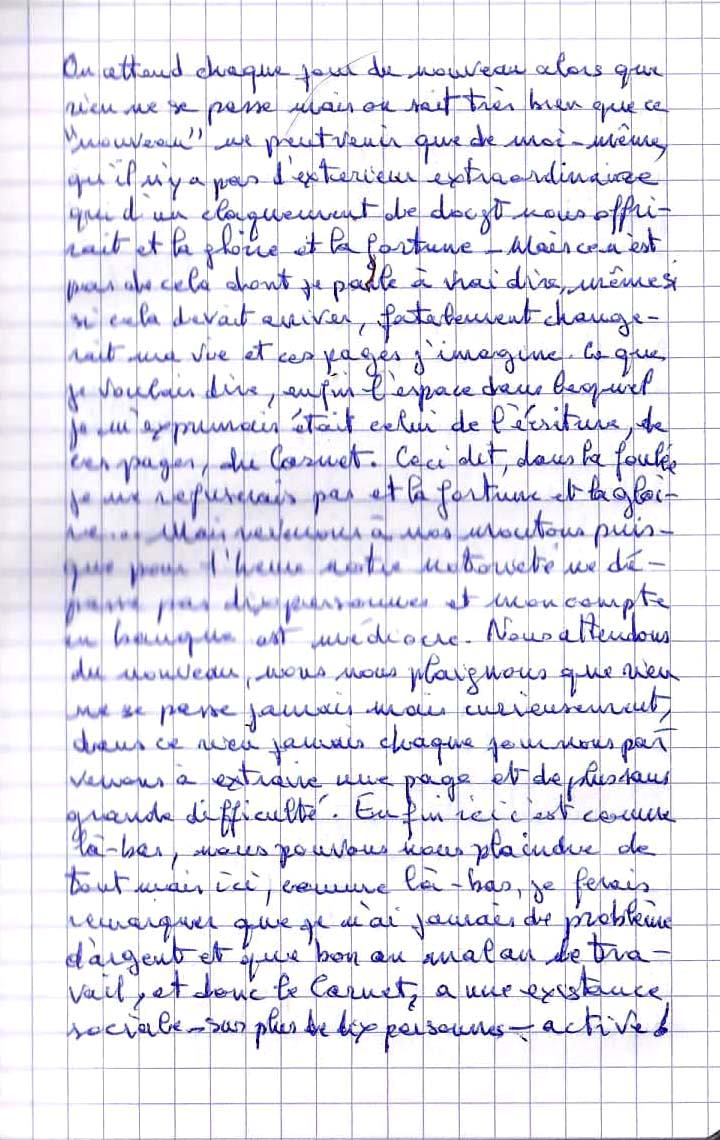 On attend chaque jour du nouveau alors que
rien ne se passe mais on sait très bien que ce
"nouveau" ne peut venir que de moi-même,
qu'il n'y a pas d'exterieur extraordinaire
qui d'un claquement de doigt nous offri-
rait et la gloire et la fortune - Mais ce n'est
pas de cela dont je parle à vrai dire, même si
si cela devait arriver, fatalement change-
rait ma vie et ces pages j'imagine. Ce que
je voulais dire, enfin l'espace dans lequel
je m'exprimais était celui de l'écriture, de
ces pages, du Carnet. Ceci dit, dans la foulée
je ne refuserais pas et la fortune et la gloi-
re... Mais revenons à nos moutons puis-
que pour l'heure notre notorieté ne dé-
passe pas dix personnes et mon compte
en banque est médiocre. Nous attendons
du nouveau, nous nous plaignons que rien
ne se passe jamais mais curieusement,
dans ce rien jamais chaque jour nous par
venons à extraire une page et de plus sans
grande difficulté. Enfin ici c'est comme
là-bas, nous pouvons nous plaindre de
tout mais ici, comme là-bas, je ferais
remarquer que je n'ai jamais de problème
d'argent et que bon an mal an le tra-
vail, et donc le Carnet, a une existence
sociale - sur plus de dix personnes - active